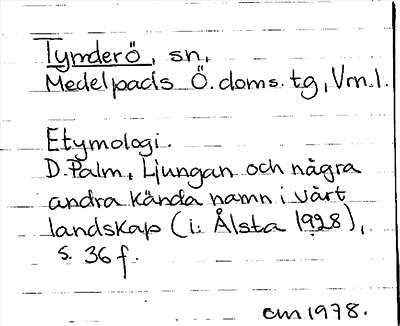 Tynderö, sn,
Medelpads Ö. doms. tg, Vrn. l.
Etymologi.
D. Palm, Ljungan och några
andra kända namn i vårt
landskap (i: Ålsta 1928),
s. 36 f.
cm 1978.